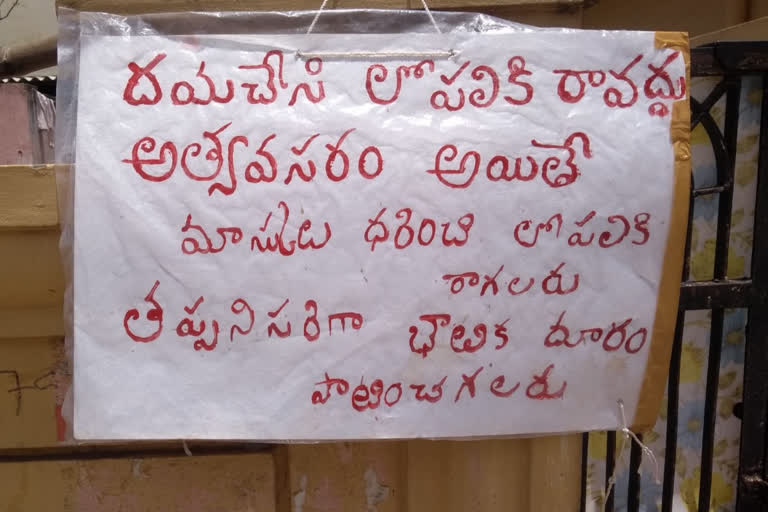 దయచేసి లోపలికి రావద్దు
అత్వవసరం అయితే
మాస్కులు ధరించి లోపలికి
రాగలరు
తప్పనిసరిగా భౌతిక దూరం
పాటించగలరు